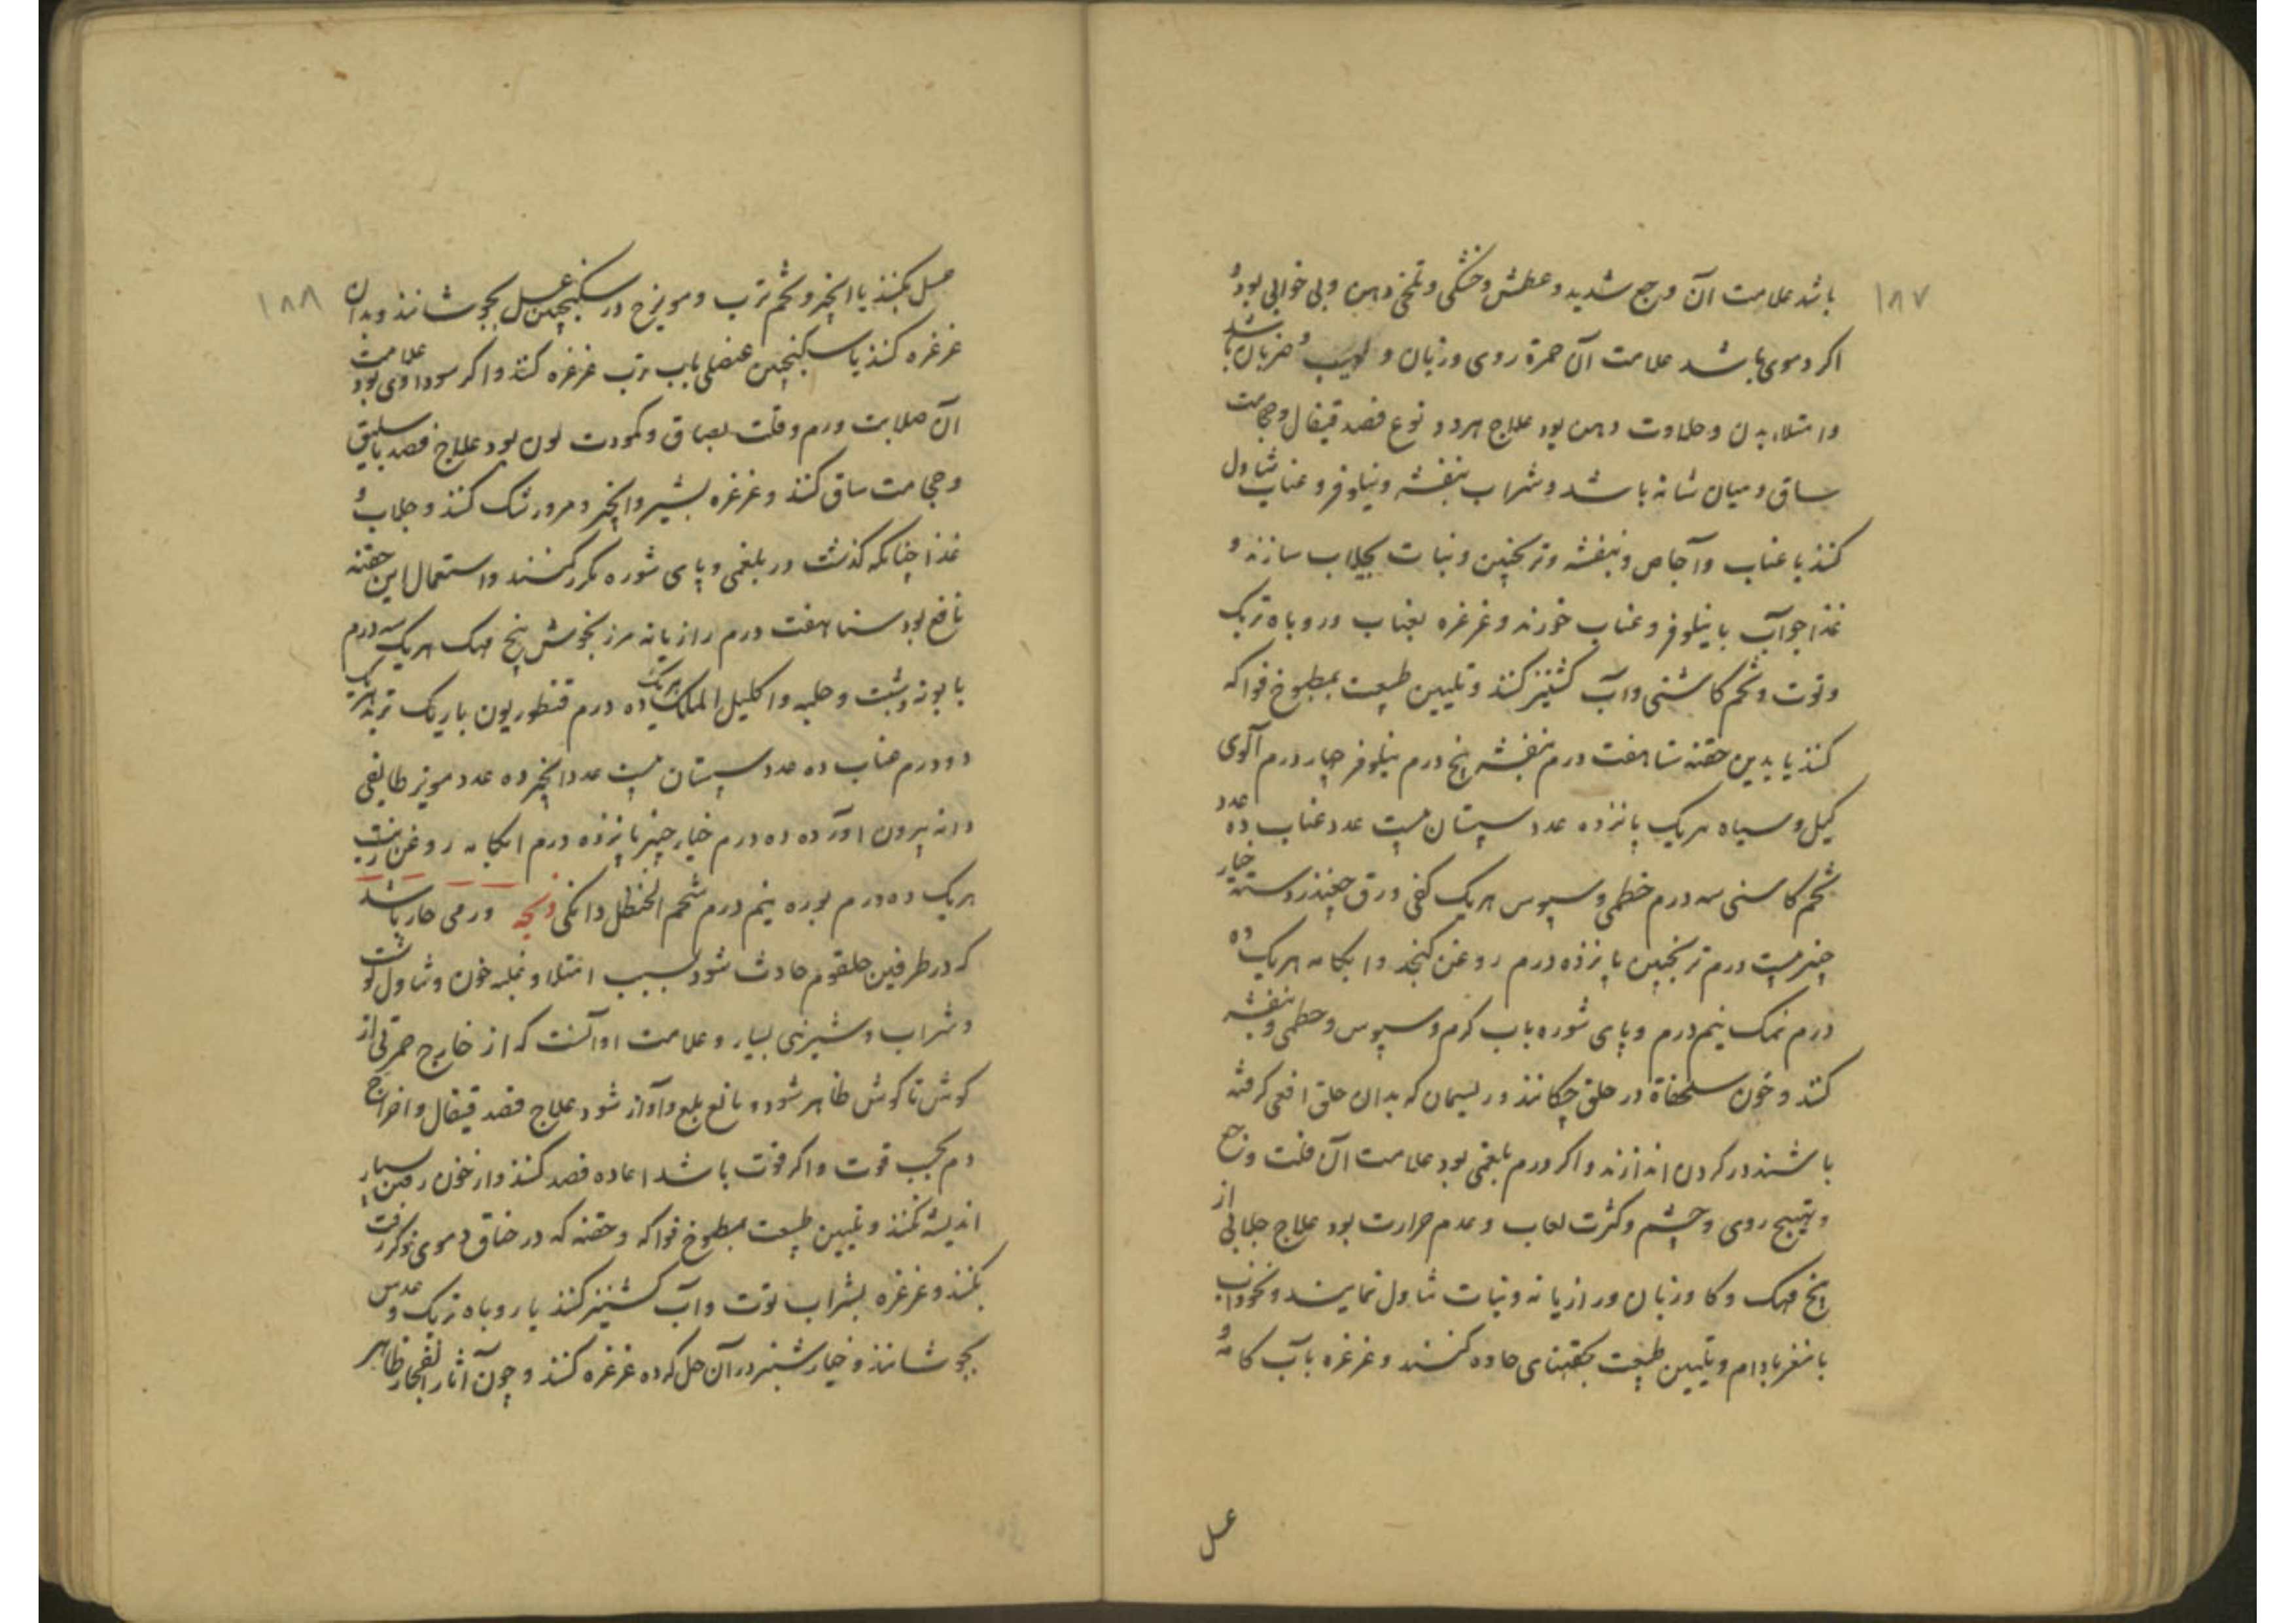 ۱۸۷
باشد علامت آن وجع شدید و عطش و خشکی و تلخی دهن و بی خوابی بود و
اکر دموی باشد علامت آن حمرة روی و زبان و لهیب و ضربان باشد
و امتلاء بدن و حلاوت دهن بود علاج هر دو نوع فصد قیفال و حجامت
ساق و میان شانه باشد و شراب بنفشه و نیلوفر و عناب تناول
کنند با عناب و آجاص و بنفشه و ترنجبین و نبات بجلاب سازند و
غذا جوآب با نیلوفر و عناب خورند و غرغره بعناب و روباه تربک
و توت و تخم کاسنی و آب کشنیز کنند و تلیین طبیعت بمطبوخ فواکه
کنند یا بدین حقنه سنا هفت درم بنفشه پنج درم نیلوفر چهار درم آلوی
کیل و سیاه هریک پانزده عدد سپستان بیست عدد عناب ده عدد
تخم کاسنی سه درم خطمی و سپوس هریک کفی ورق چغندر دسته خیار
چنبر بیست درم ترنجبین پانزده درم روغن کنجد و ابکامه هریک ده
درم نمک نیم درم و پای شوره باب کرم و سپوس و خطمی و بنفشه
کنند و خون سلحفاة در حلق چکانند و ریسمان که بدان حلق افعی کرفته
باشند در کردن اندازند و اکر ورم بلغمی بود علامت آن قلت وجع
و تهیج روی و چشم و کثرت لعاب و عدم حرارت بود علاج جلابی از
بیخ مهک و کاوزبان و رازیانه و نبات تناول نمایند و نخوداب
با مغز بادام و تلیین طبیعت بحقنهای حاده کنند و غرغره بآب کامه و
عسل
۱۸۸
عسل بکنند یا انجیر و تخم ترب و مویزج در سکنجبین عسل بجوشانند و بدان
غرغره کنند یا سکنجبین عنصلی باب ترب غرغره کنند و اکر سوداوی بود علامت
آن صلابت ورم و قلت بصاق و کمودت لون بود علاج فصد باسلیق
و حجامت ساق کنند و غرغره بشیر و انجیر و مرورشک کنند و جلاب و
غذا چنانکه کذشت در بلغمی و پای شوره مکرر کنند و استعمال این حقنه
نافع بود سنا هفت درم رازیانه مرزنجوش بیخ مهک هریک سه درم
بابونه و شبت و حلبه و اکلیل الملک هریک ده درم قنطوریون باریک تربد هریک
دو درم عناب ده عدد سپستان بیست عدد انجیر ده عدد مویز طایفی
دانه بیرون آورده ده درم خیار چنبر پانزده درم ابکامه روغن زیت
هریک ده درم بوره نیم درم شحم الحنظل دانکی ذبحه ورمی حار باشد
که در طرفین حلقوم حادث شود بسبب امتلا و غلبه خون و تناول کوشت
و شراب و شیرینی بسیار و علامت او آنست که از خارج حمرتی از
کوش تا کوش ظاهر شود و مانع بلع و آواز شود علاج فصد قیفال و اخراج
دم بحسب قوت و اکر قوت باشد اعاده فصد کنند و از خون رفتن بسیار
اندیشه نکنند و تلیین طبیعت بمطبوخ فواکه و حقنه که در خناق دموی ذکر رفت
بکنند و غرغره بشراب توت و آب کشنیز کنند یا روباه تربک و عدس
بجوشانند و خیارشنبر در آن حل کرده غرغره کنند و چون آثار انفجار ظاهر